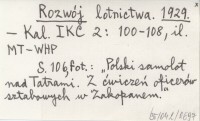 Rozwój lotnictwa. 1929.
– Kal. IKC 2: 100-108, il.
MT-WHP
S. 106, Fot.: „Polski samolot
nad Tatrami. Z ćwiczeń oficerów
sztabowych w Zakopanem."